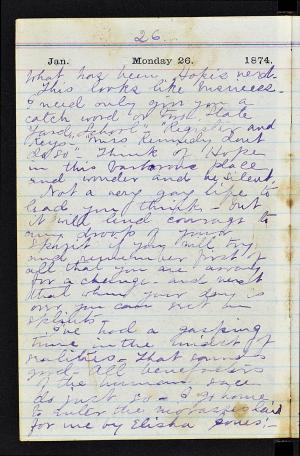 26
Jan. Monday 26. 1874.
What has been, Hope's need.
This looks like business.
I need only give you a
catch word or two, State
Yard, School, Register, and
Keys - "Mrs Kennedy don't
do so". Think of Hope
in this place
and wonder and be silent
Not a very gay life to
lead you think - but
it will lend courage to
any drop of your
if you will try
and remember first of
all that you are away
for a change - and next
that when your day is
over you can
I've had a gasping
time in the midst of
realities. That sounds
good. All benefactors
of the human race
do just so - I go home
to enter the laid
for me by Elisha Jones! -